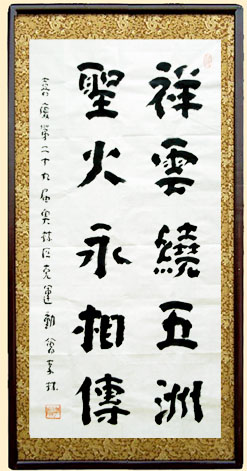 祥雲繞五洲
聖火永相傳
喜慶第二十九屆奧林匹克運動會